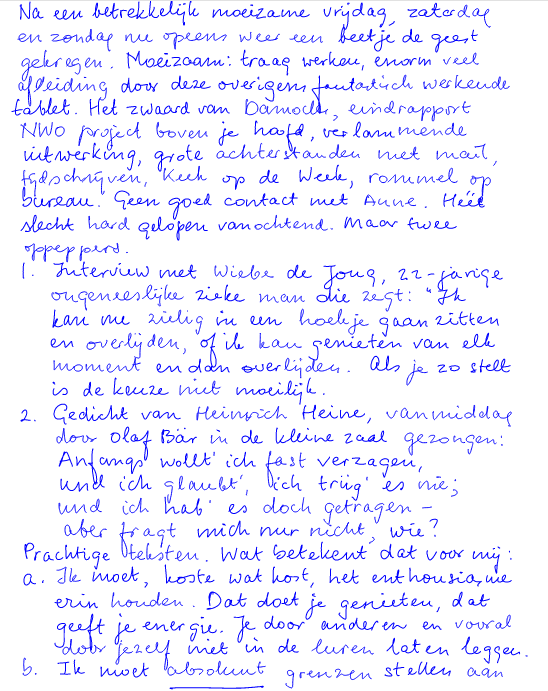 Na een betrekkelijk moeizame vrijdag, zaterdag
en zondag nu opeens weer een beetje de geest
gekregen. Moeizaam: traag werken, enorm veel
afleiding door deze overigens fantastisch werkende
tablet. Het zwaard van Damocles, eindrapport
NWO project boven je hoofd, verlammende
uitwerking, grote achterstanden met mail,
tijdschrijven, Kiek op de Week, rommel op
bureau. Geen goed contact met Anne. Héél
slecht hard gelopen vanochtend. Maar twee
oppeppers.
1. Interview met Wiebe de Jong, 22-jarige
ongeneeslijke zieke man die zegt: "Ik
kan me zielig in een hoekje gaan zitten
en overlijden, of ik kan genieten van elk
moment en dan overlijden. Als je zo stelt
is de keuze niet moeilijk.
2. Gedicht van Heinrich Heine, vanmiddag
door Olaf Bär in de kleine zaal gezongen:
Anfangs wollt' ich fast verzagen,
und ich glaubt', ich trüg' es nie;
und ich hab' es doch getragen –
aber fragt mich nur nicht, wie?
Prachtige teksten. Wat betekent dat voor mij:
a. Ik moet, koste wat kost, het enthousiasme
erin houden. Dat doet je genieten, dat
geeft je energie. Je door anderen en vooral
door jezelf niet in de luren laten leggen.
b. Ik moet absoluut grenzen stellen aan